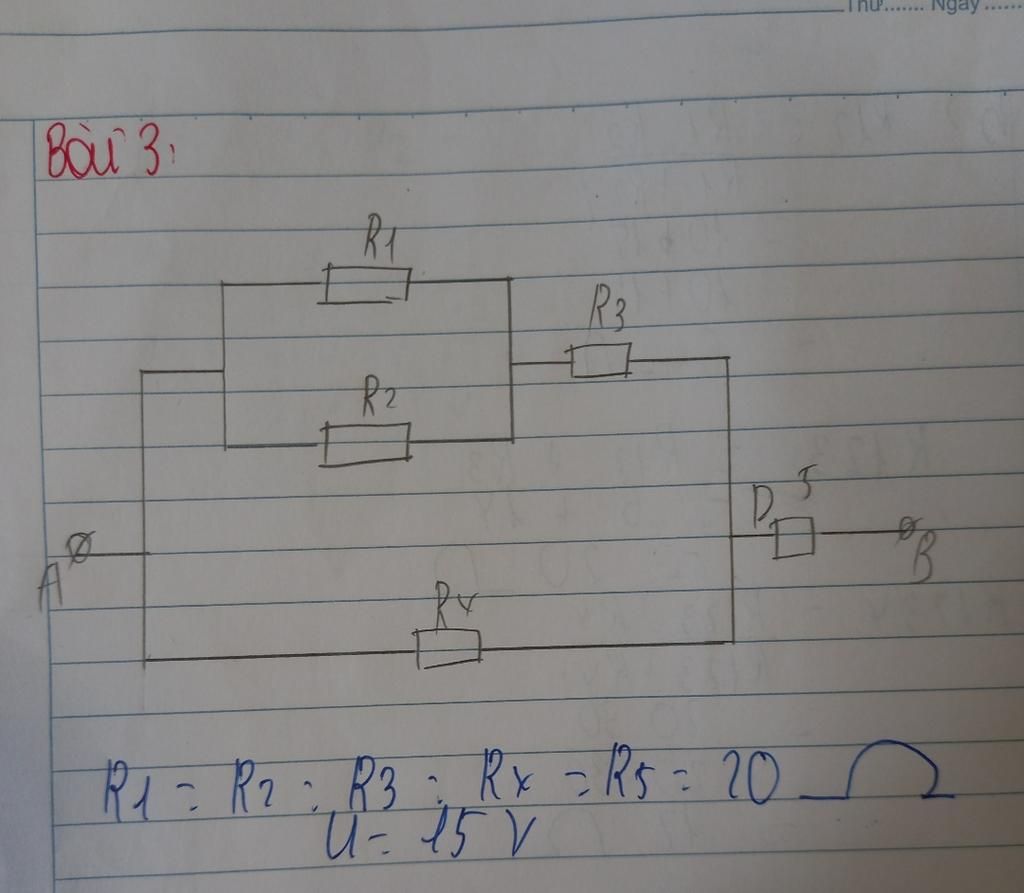 Thứ....... Ngày......
Bài 3:
R1
R3
R2
D 5
A
B
R4
R1 = R2 = R3 = R4 = R5 = 20 Ω
U = 15 V